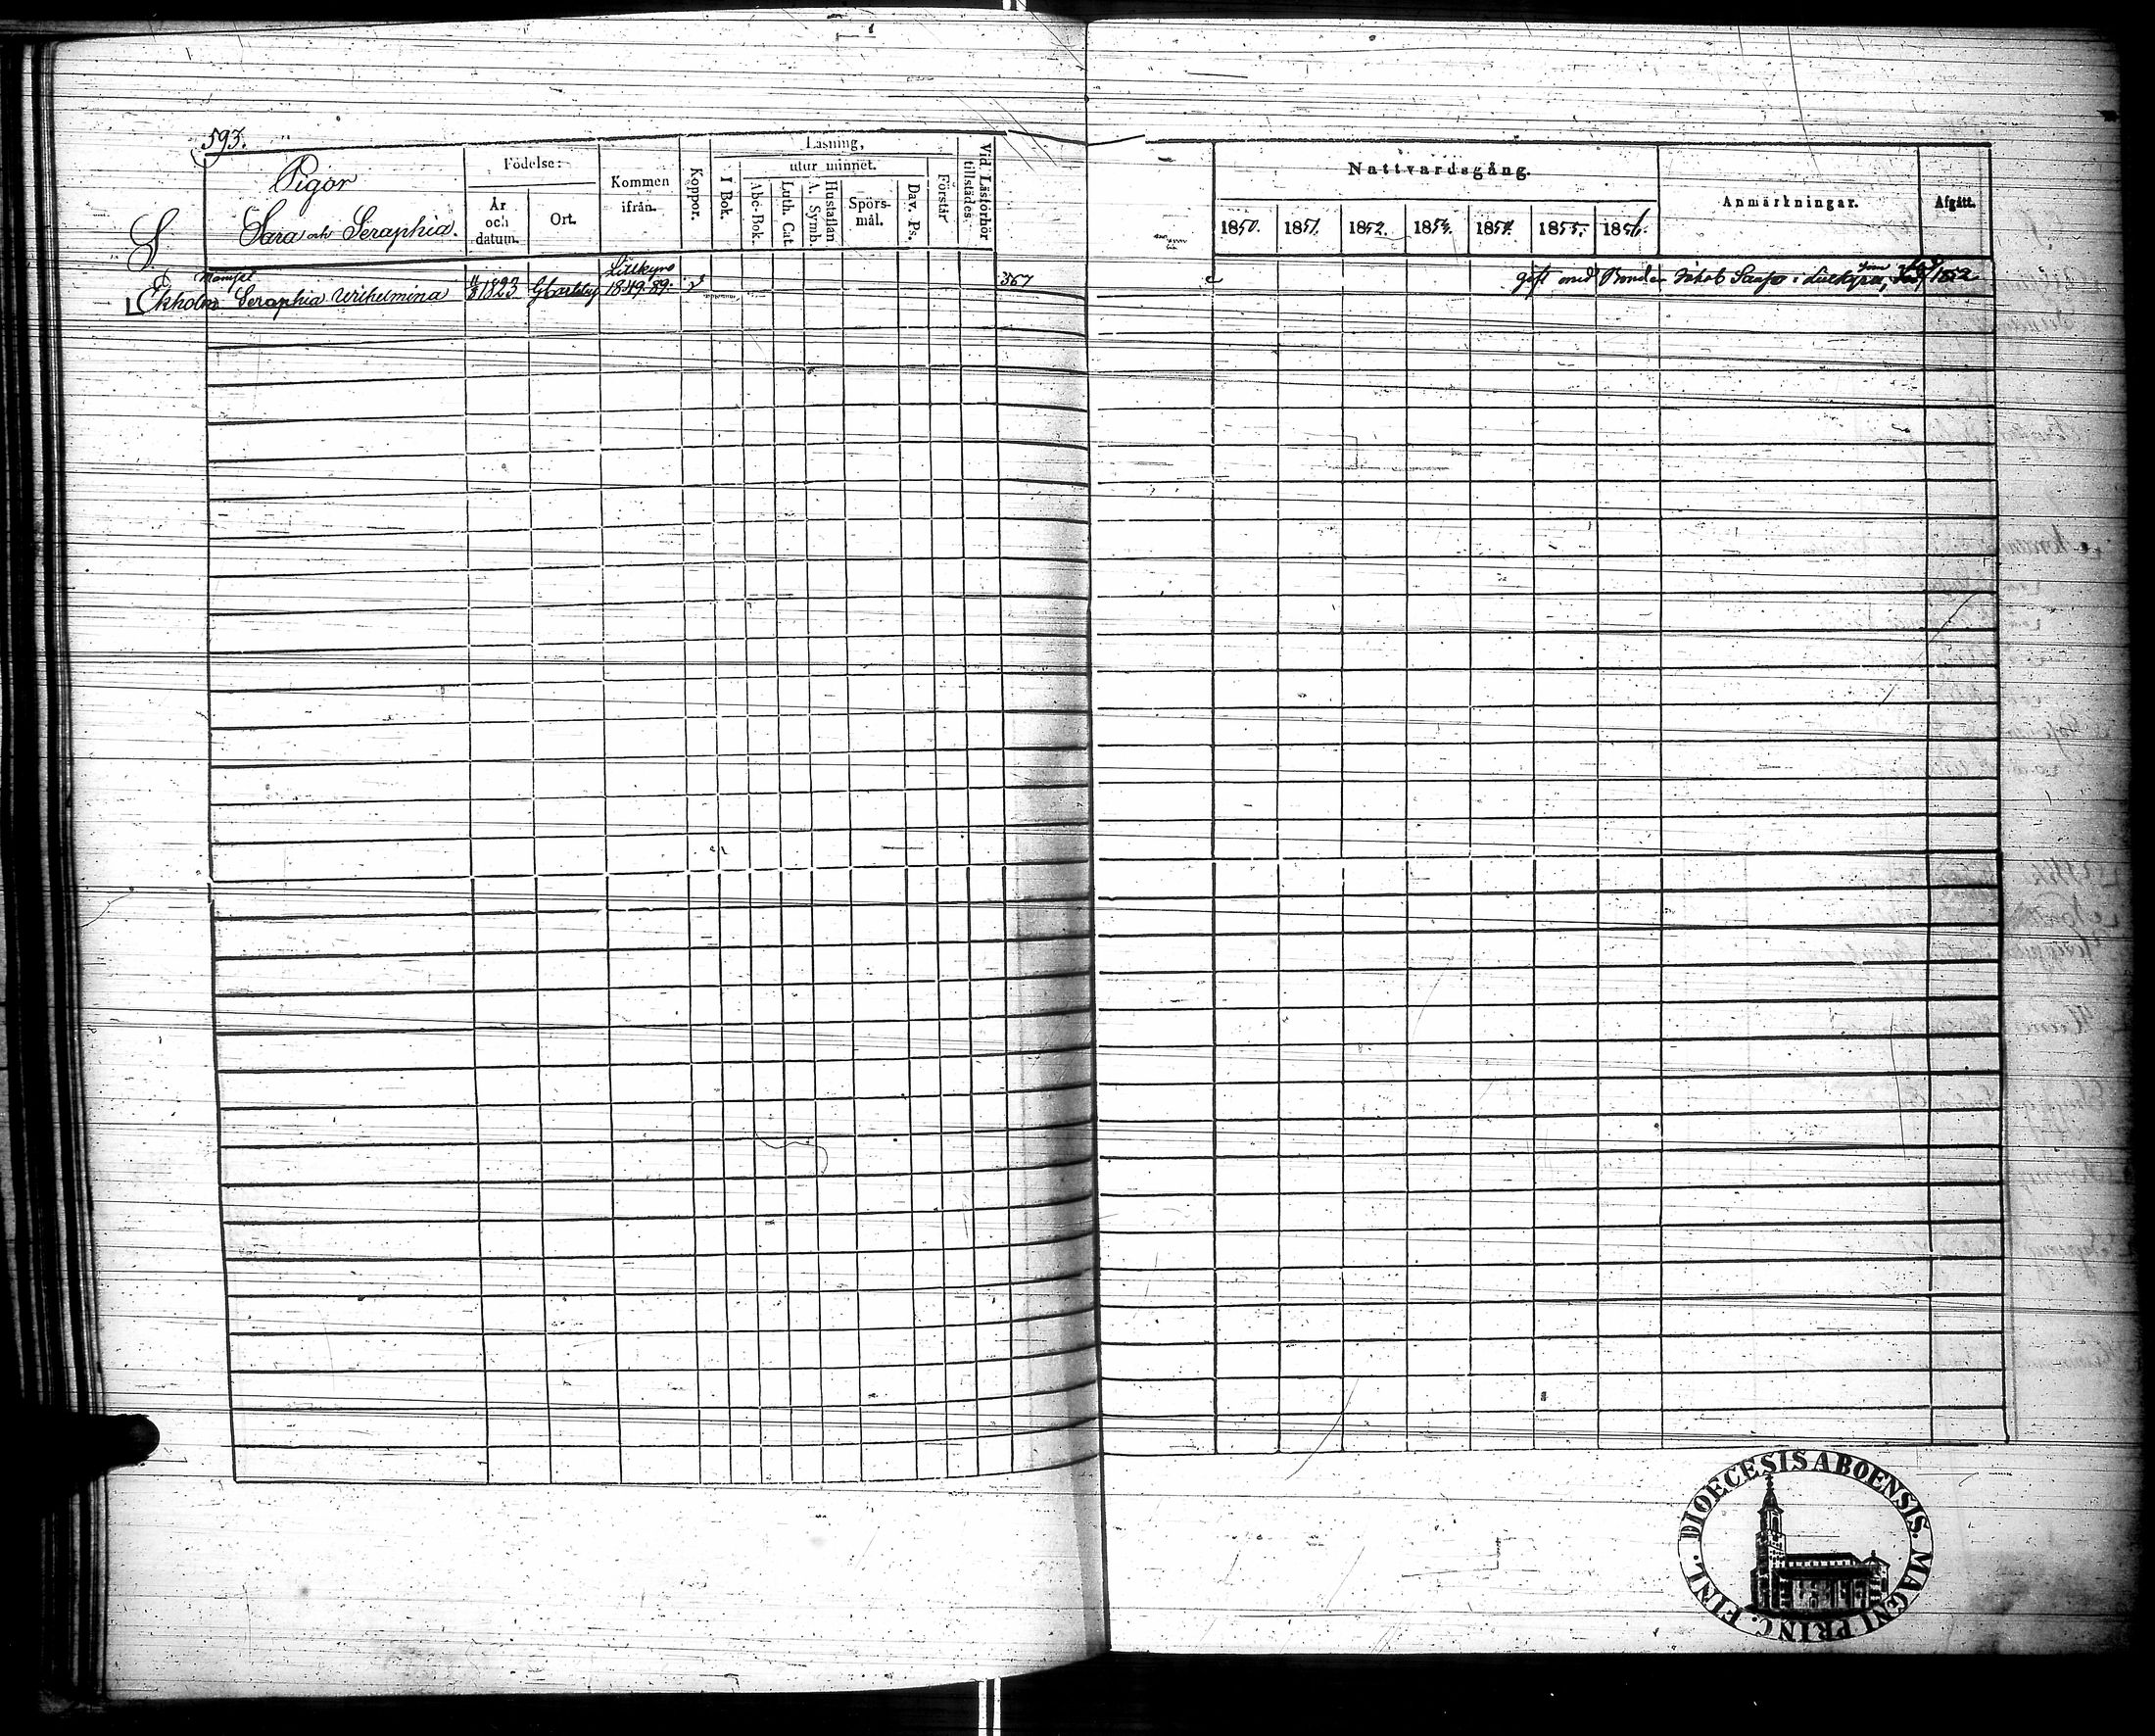 593.
Pigor
Sara och Seraphia.
S.
Födelse:
År och datum.
Ort.
Kommen ifrån.
Koppor.
Läsning,
utur minnet.
I Bok.
Abc-Bok.
Luth. Cat.
Hustaflan A. Symb.
Spörs-mål.
Dav. Ps.
Förstår
Vid Läsförhör tillstädes.
Nattvardsgång.
1850. 1851. 1852. 1853. 1854. 1855. 1856.
Anmärkningar.
Afgått.
Mamsel
Ekholm Seraphia Wilhelmina 1823 Lillkyro 1849. 89. v 367
gift med Bonden Jakob i Lillkyro, 1852
DIOECESIS ABOENSIS. MAGNI PRINC. FINL.